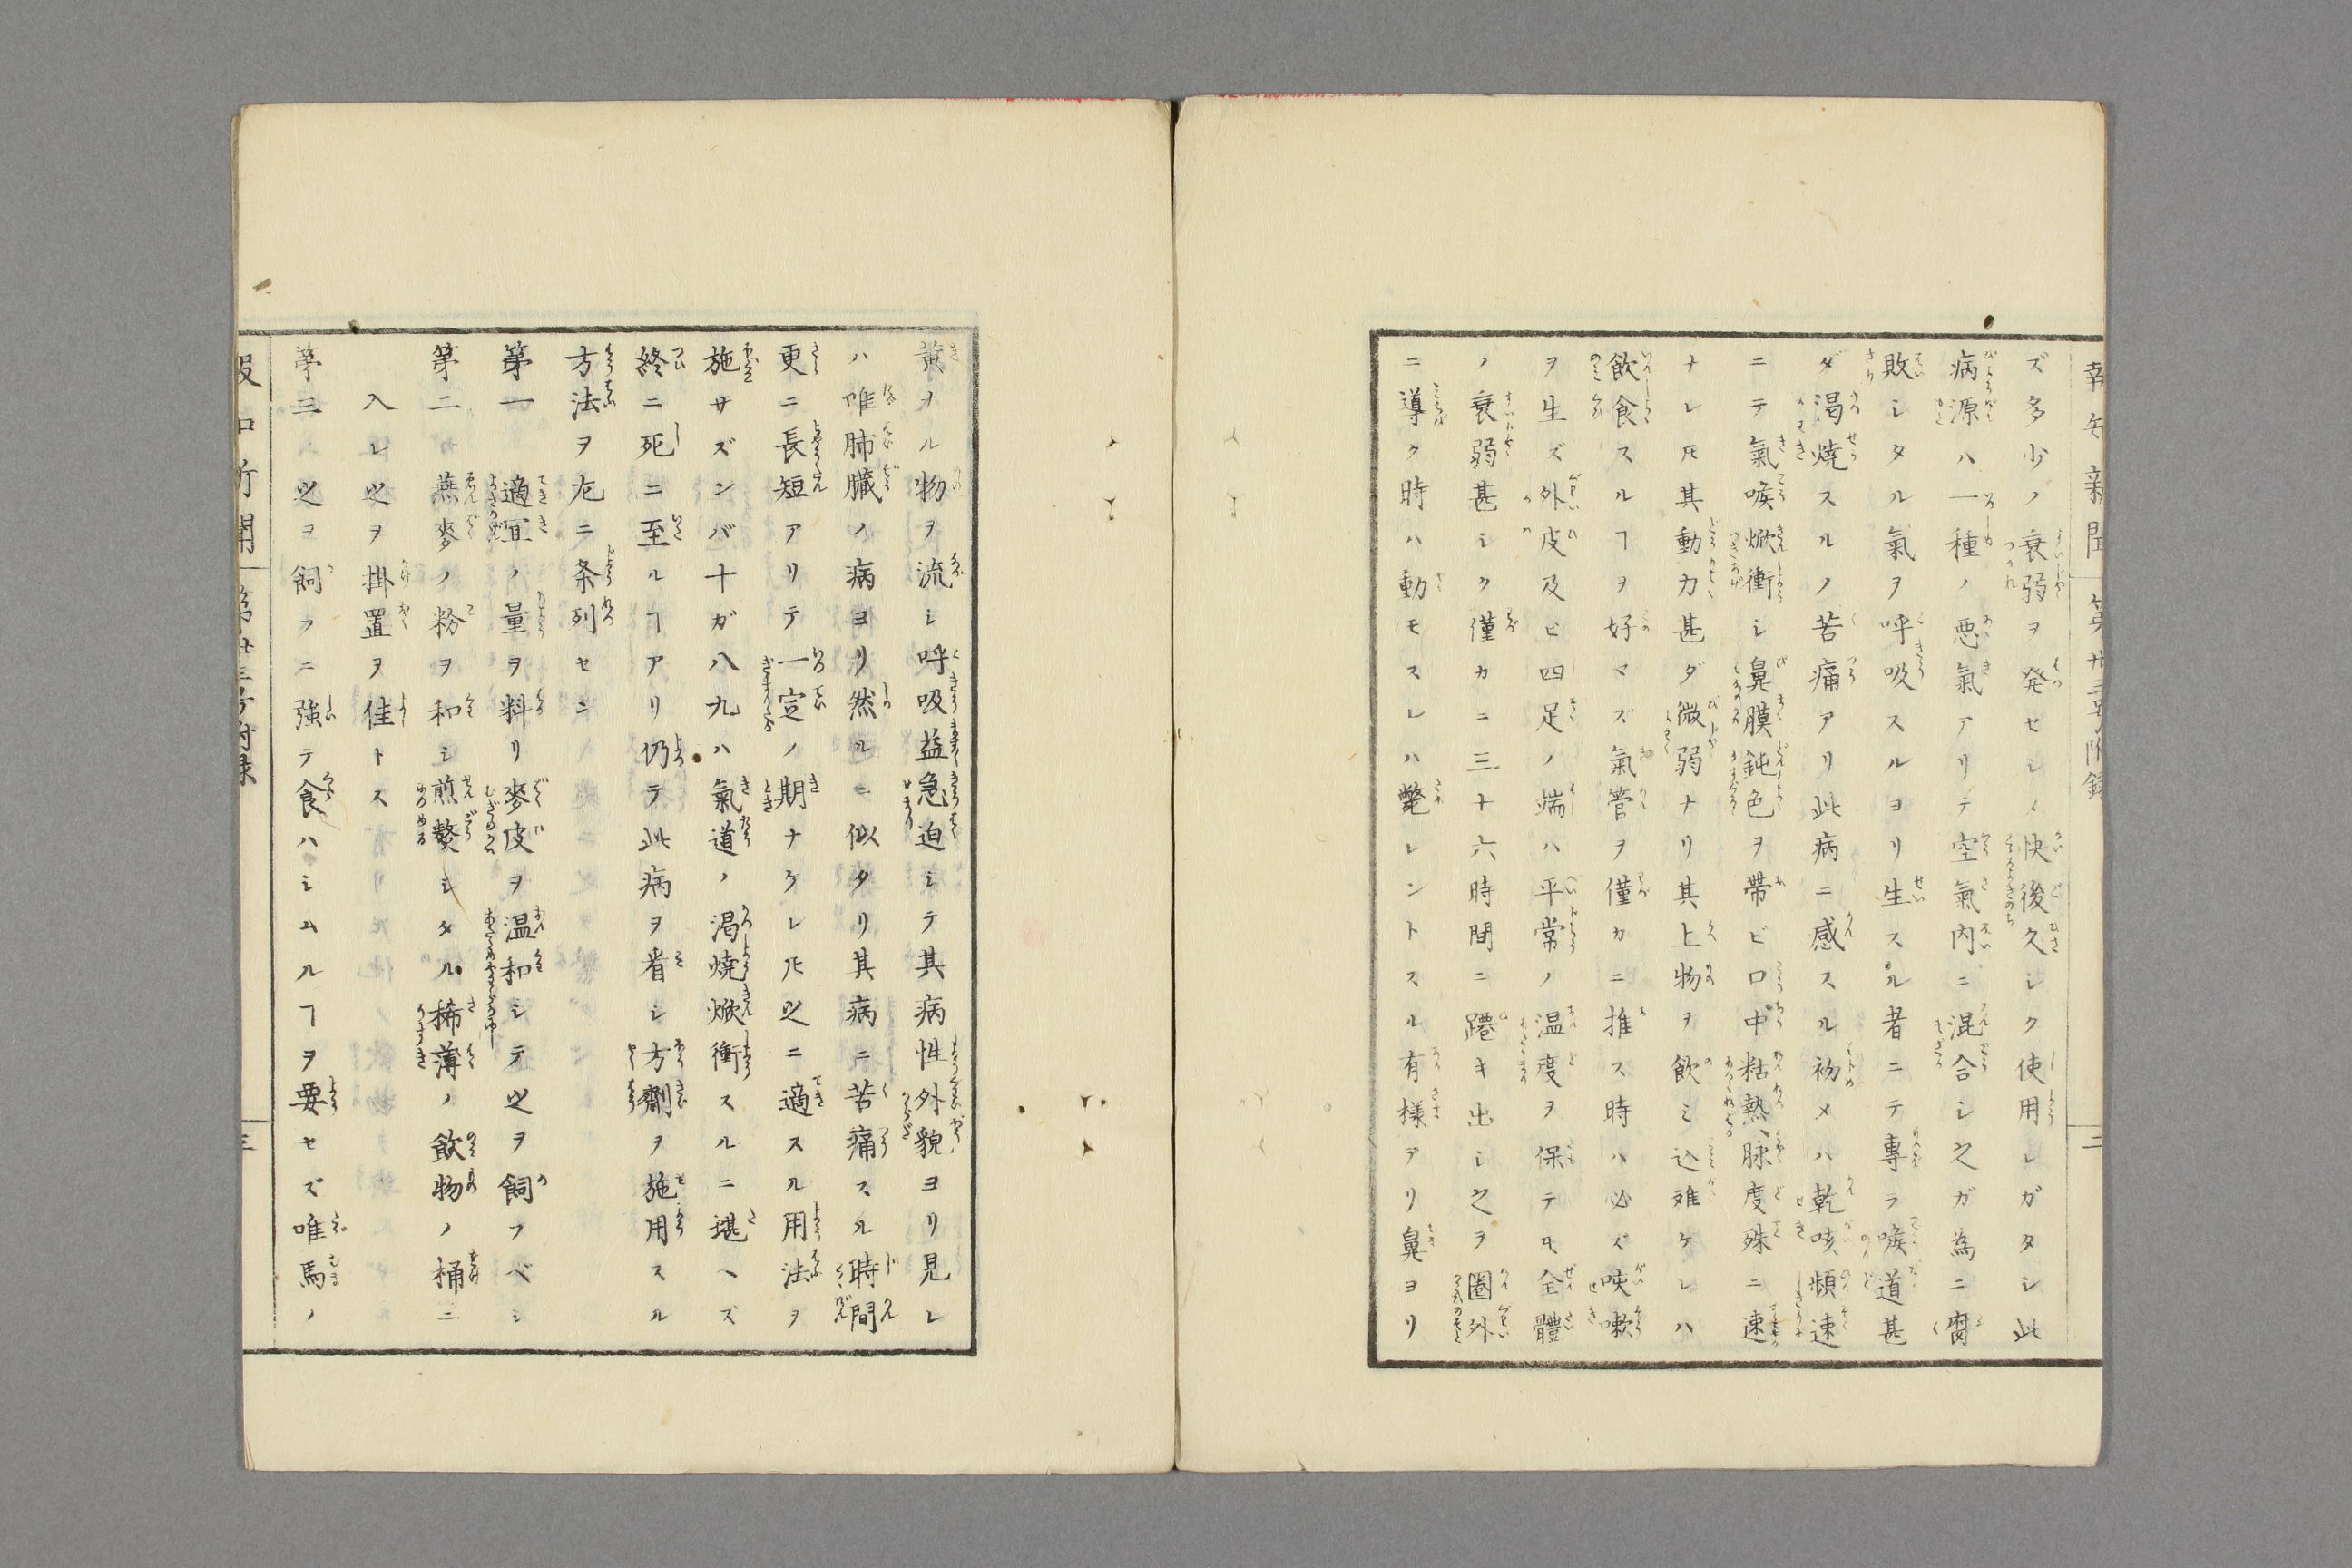 報知新聞 第廿三号附録 二
ズ多少ノ衰弱ヲ発セシメ快後久シク使用シガタシ此
病源ハ一種ノ悪氣アリテ空氣内ニ混合シ之ガ為ニ腐
敗シタル氣ヲ呼吸スルヨリ生スル者ニテ專ラ喉道甚
ダ渇焼スルノ苦痛アリ此病ニ感スル初メハ乾咳頻速
ニテ氣喉焮衝シ鼻膜鈍色ヲ帶ビ口中粘熱、脉度殊ニ速
ナレ𪜈其動力甚ダ微弱ナリ其上物ヲ飲ミ込難ケレハ
飲食スルヿヲ好マズ氣管ヲ僅カニ推ス時ハ必ズ咳嗽
ヲ生ズ外皮及ビ四足ノ端ハ平常ノ温度ヲ保テ𪜈全體
ノ衰弱甚シク僅カニ三十六時間ニ躍キ出シ之ヲ圈外
ニ導ク時ハ動モスレハ斃レントスル有様アリ鼻ヨリ
黄ナル物ヲ流シ呼吸益急迫シテ其病性外貌ヨリ見レ
ハ唯肺臓ノ病ヨリ然ルニ似タリ其病ニ苦痛スル時間
更ニ長短アリテ一定ノ期ナケレ𪜈之ニ適スル用法ヲ
施サズンバ十ガ八九ハ氣道ノ渇焼焮衝スルニ堪ヘズ
終ニ死ニ至ルヿアリ仍テ此病ヲ省シ方劑ヲ施用スル
方法ヲ左ニ条列セン
第一 適冝ノ量ヲ料リ麥皮ヲ温和シテ之ヲ飼フベシ
第二 燕麥ノ粉ヲ和シ煎熬シタル稀薄ノ飲物ノ桶ニ
入レ之ヲ掛置ヲ佳トス
第三 之ヲ飼フニ強テ食ハシムルヿヲ要セズ唯馬ノ
報知新聞 第廿三号附録 三